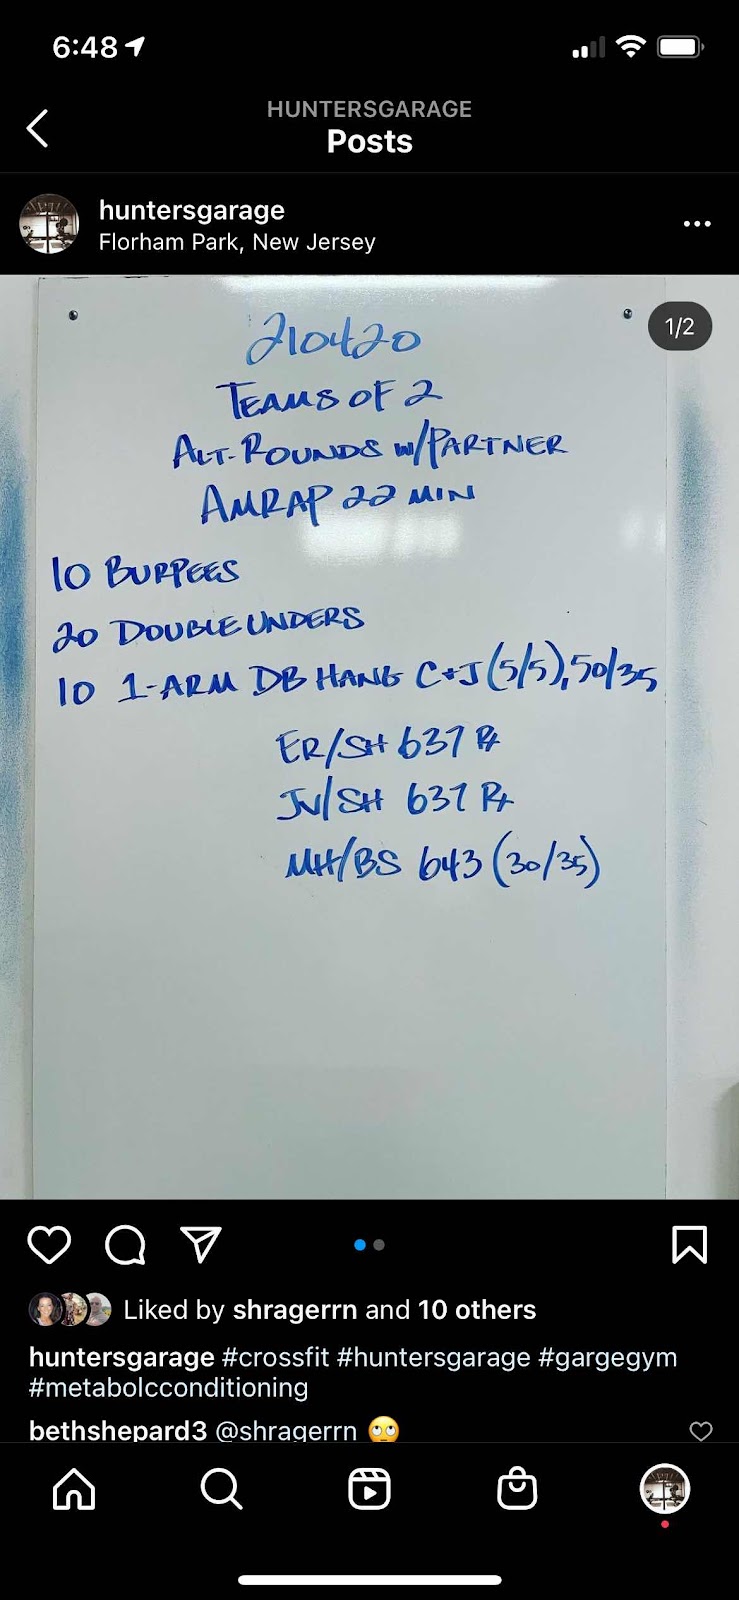 6:48
HUNTERSGARAGE
Posts
huntersgarage
Florham Park, New Jersey
1/2
210420
TEAMS OF 2
ALT-ROUNDS W/PARTNER
AMRAP 22 MIN
10 BURPEES
20 DOUBLE UNDERS
10 1-ARM DB HANG C+J (5/5), 50/35
ER/SH 637 Rx
JV/SH 637 Rx
MH/BS 643 (30/35)
Liked by shragerrn and 10 others
huntersgarage #crossfit #huntersgarage #gargegym
#metabolcconditioning
bethshepard3 @shragerrn 🙄